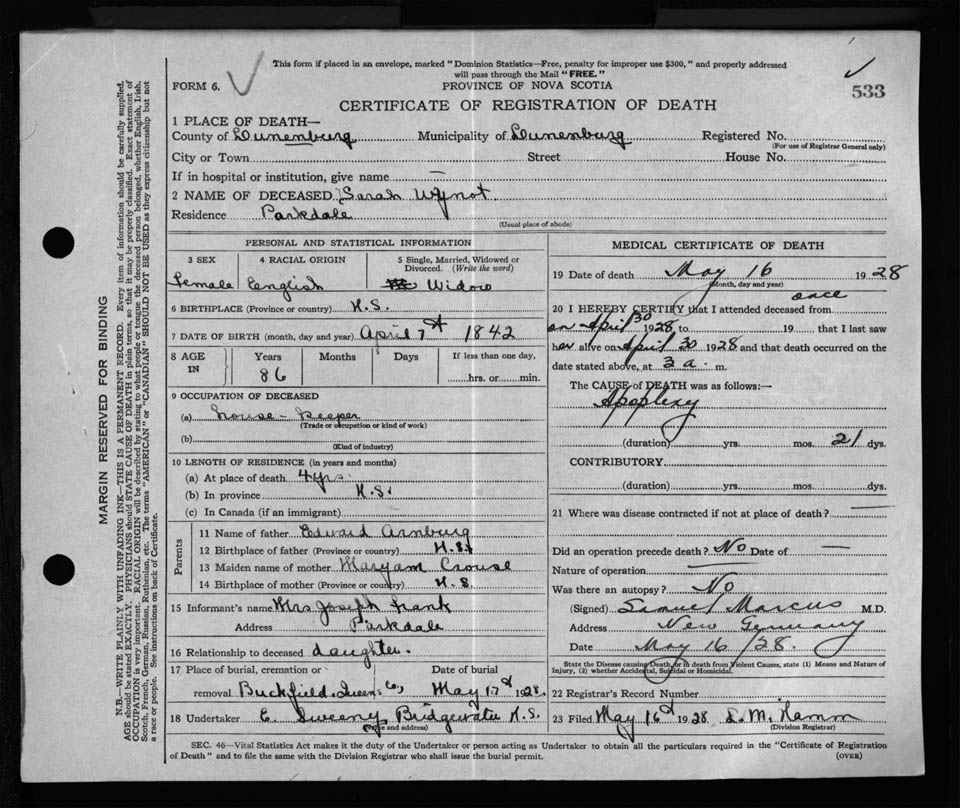 This form if placed in an envelope, marked "Dominion Statistics—Free, penalty for improper use $300," and properly addressed
will pass through the Mail "FREE."
FORM 6.
PROVINCE OF NOVA SCOTIA
533
CERTIFICATE OF REGISTRATION OF DEATH
1 PLACE OF DEATH—
County of Lunenburg Municipality of Lunenburg Registered No.
(For use of Registrar General only)
City or Town Street House No.
If in hospital or institution, give name —
2 NAME OF DECEASED Sarah Wynot
Residence Parkdale
(Usual place of abode)
PERSONAL AND STATISTICAL INFORMATION
3 SEX 4 RACIAL ORIGIN 5 Single, Married, Widowed or
Divorced. (Write the word)
Female English Widow
6 BIRTHPLACE (Province or country) N.S.
7 DATE OF BIRTH (month, day and year) April 7th 1842
8 AGE IN Years Months Days If less than one day,
86 hrs. or min.
9 OCCUPATION OF DECEASED
(a) House-keeper
(Trade or occupation or kind of work)
(b)
(Kind of industry)
10 LENGTH OF RESIDENCE (in years and months)
(a) At place of death 4 yrs
(b) In province N.S.
(c) In Canada (if an immigrant)
Parents
11 Name of father Edward Arnburg
12 Birthplace of father (Province or country) N.S.
13 Maiden name of mother Maryam Crouse
14 Birthplace of mother (Province or country) N.S.
15 Informant's name Mrs Joseph Frank
Address Parkdale
16 Relationship to deceased daughter.
17 Place of burial, cremation or Date of burial
removal Buckfield, Queens Co, May 17th 1928.
18 Undertaker E. Sweeny Bridgewater N.S.
(Name and address)
MEDICAL CERTIFICATE OF DEATH
19 Date of death May 16 1928
(Month, day and year)
once
20 I HEREBY CERTIFY that I attended deceased from
on April 30 1928, to 19 that I last saw
her alive on April 30 1928 and that death occurred on the
date stated above, at 3 a. m.
The CAUSE of DEATH was as follows:—
Apoplexy
(duration) yrs. mos. 21 dys.
CONTRIBUTORY
(duration) yrs. mos. dys.
21 Where was disease contracted if not at place of death? —
Did an operation precede death? No Date of —
Nature of operation —
Was there an autopsy? No
(Signed) Samuel Marcus M.D.
Address New Germany
Date May 16/28.
State the Disease causing Death, or in death from Violent Causes, state (1) Means and Nature of
Injury, (2) whether Accidental, Suicidal or Homicidal.
22 Registrar's Record Number
23 Filed May 16th 1928 L. M. Hamm
(Division Registrar)
SEC. 46—Vital Statistics Act makes it the duty of the Undertaker or person acting as Undertaker to obtain all the particulars required in the "Certificate of Registration
of Death" and to file the same with the Division Registrar who shall issue the burial permit.
(OVER)
MARGIN RESERVED FOR BINDING
N.B.—WRITE PLAINLY WITH UNFADING INK—THIS IS A PERMANENT RECORD. Every item of information should be carefully supplied.
AGE should be stated EXACTLY. PHYSICIANS should STATE CAUSE OF DEATH in plain terms, so that it may be properly classified. Exact statement of
OCCUPATION is very important. RACIAL ORIGIN will be described by stating to what people or tongue the deceased person belonged, whether English, Irish,
Scotch, French, German, Russian, Ruthenian, etc. The terms "AMERICAN" or "CANADIAN" SHOULD NOT BE USED as they express citizenship but not
a race or people. See instructions on back of Certificate.